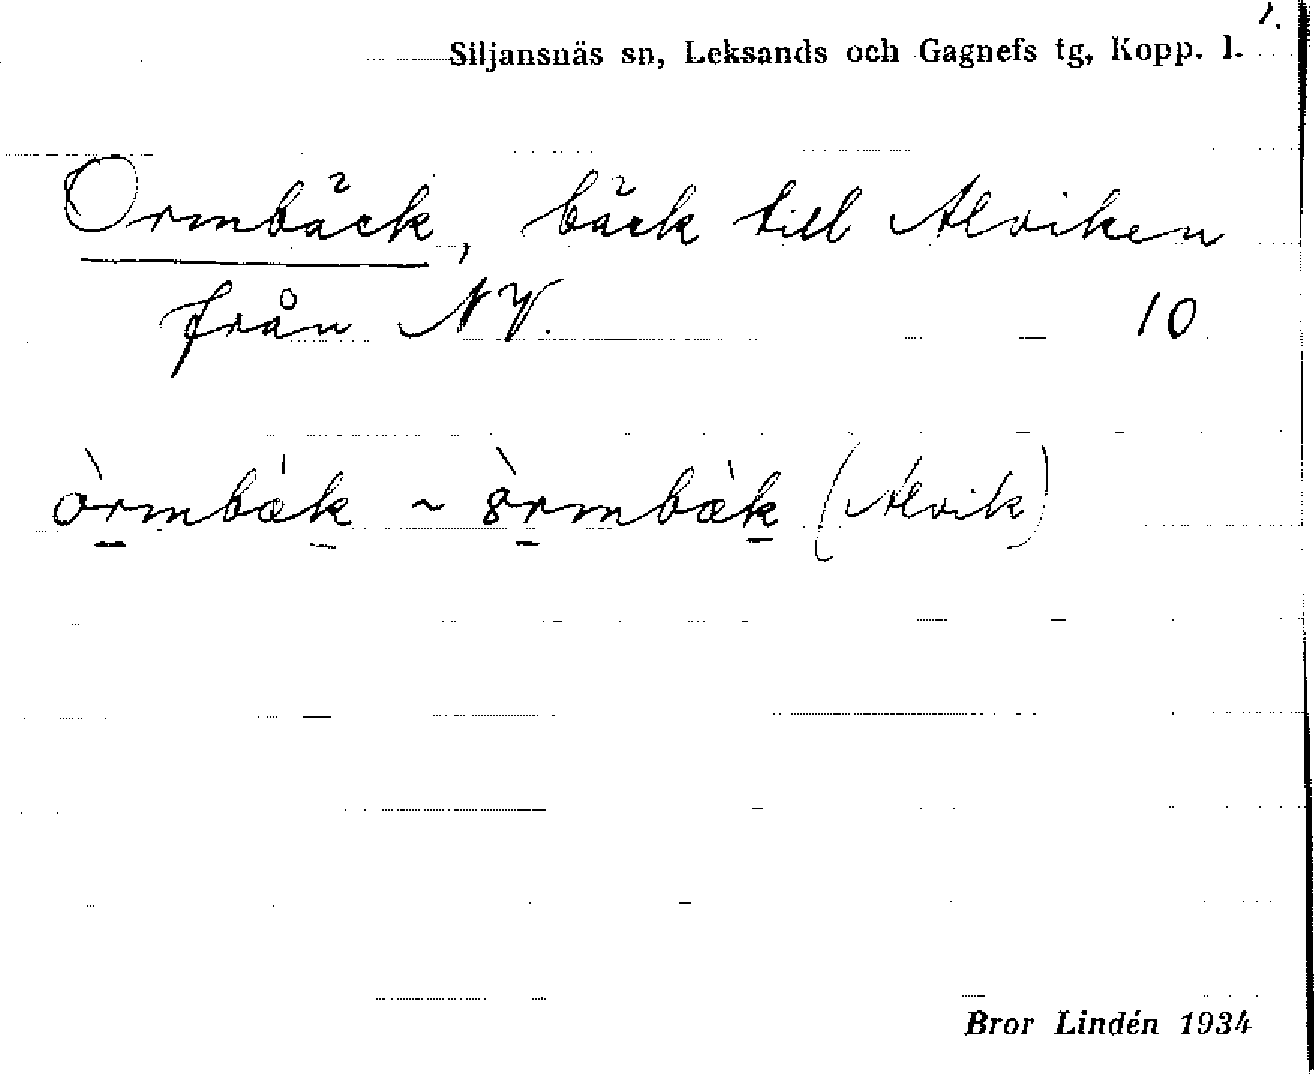 1.
Siljansnäs sn, Leksands och Gagnefs tg, Kopp. l.
Ormbäck, bäck till Alviken
från NV. 10
òrmbæ̀k ~ 8̀rmbæ̀k (Alvik)
Bror Lindén 1934